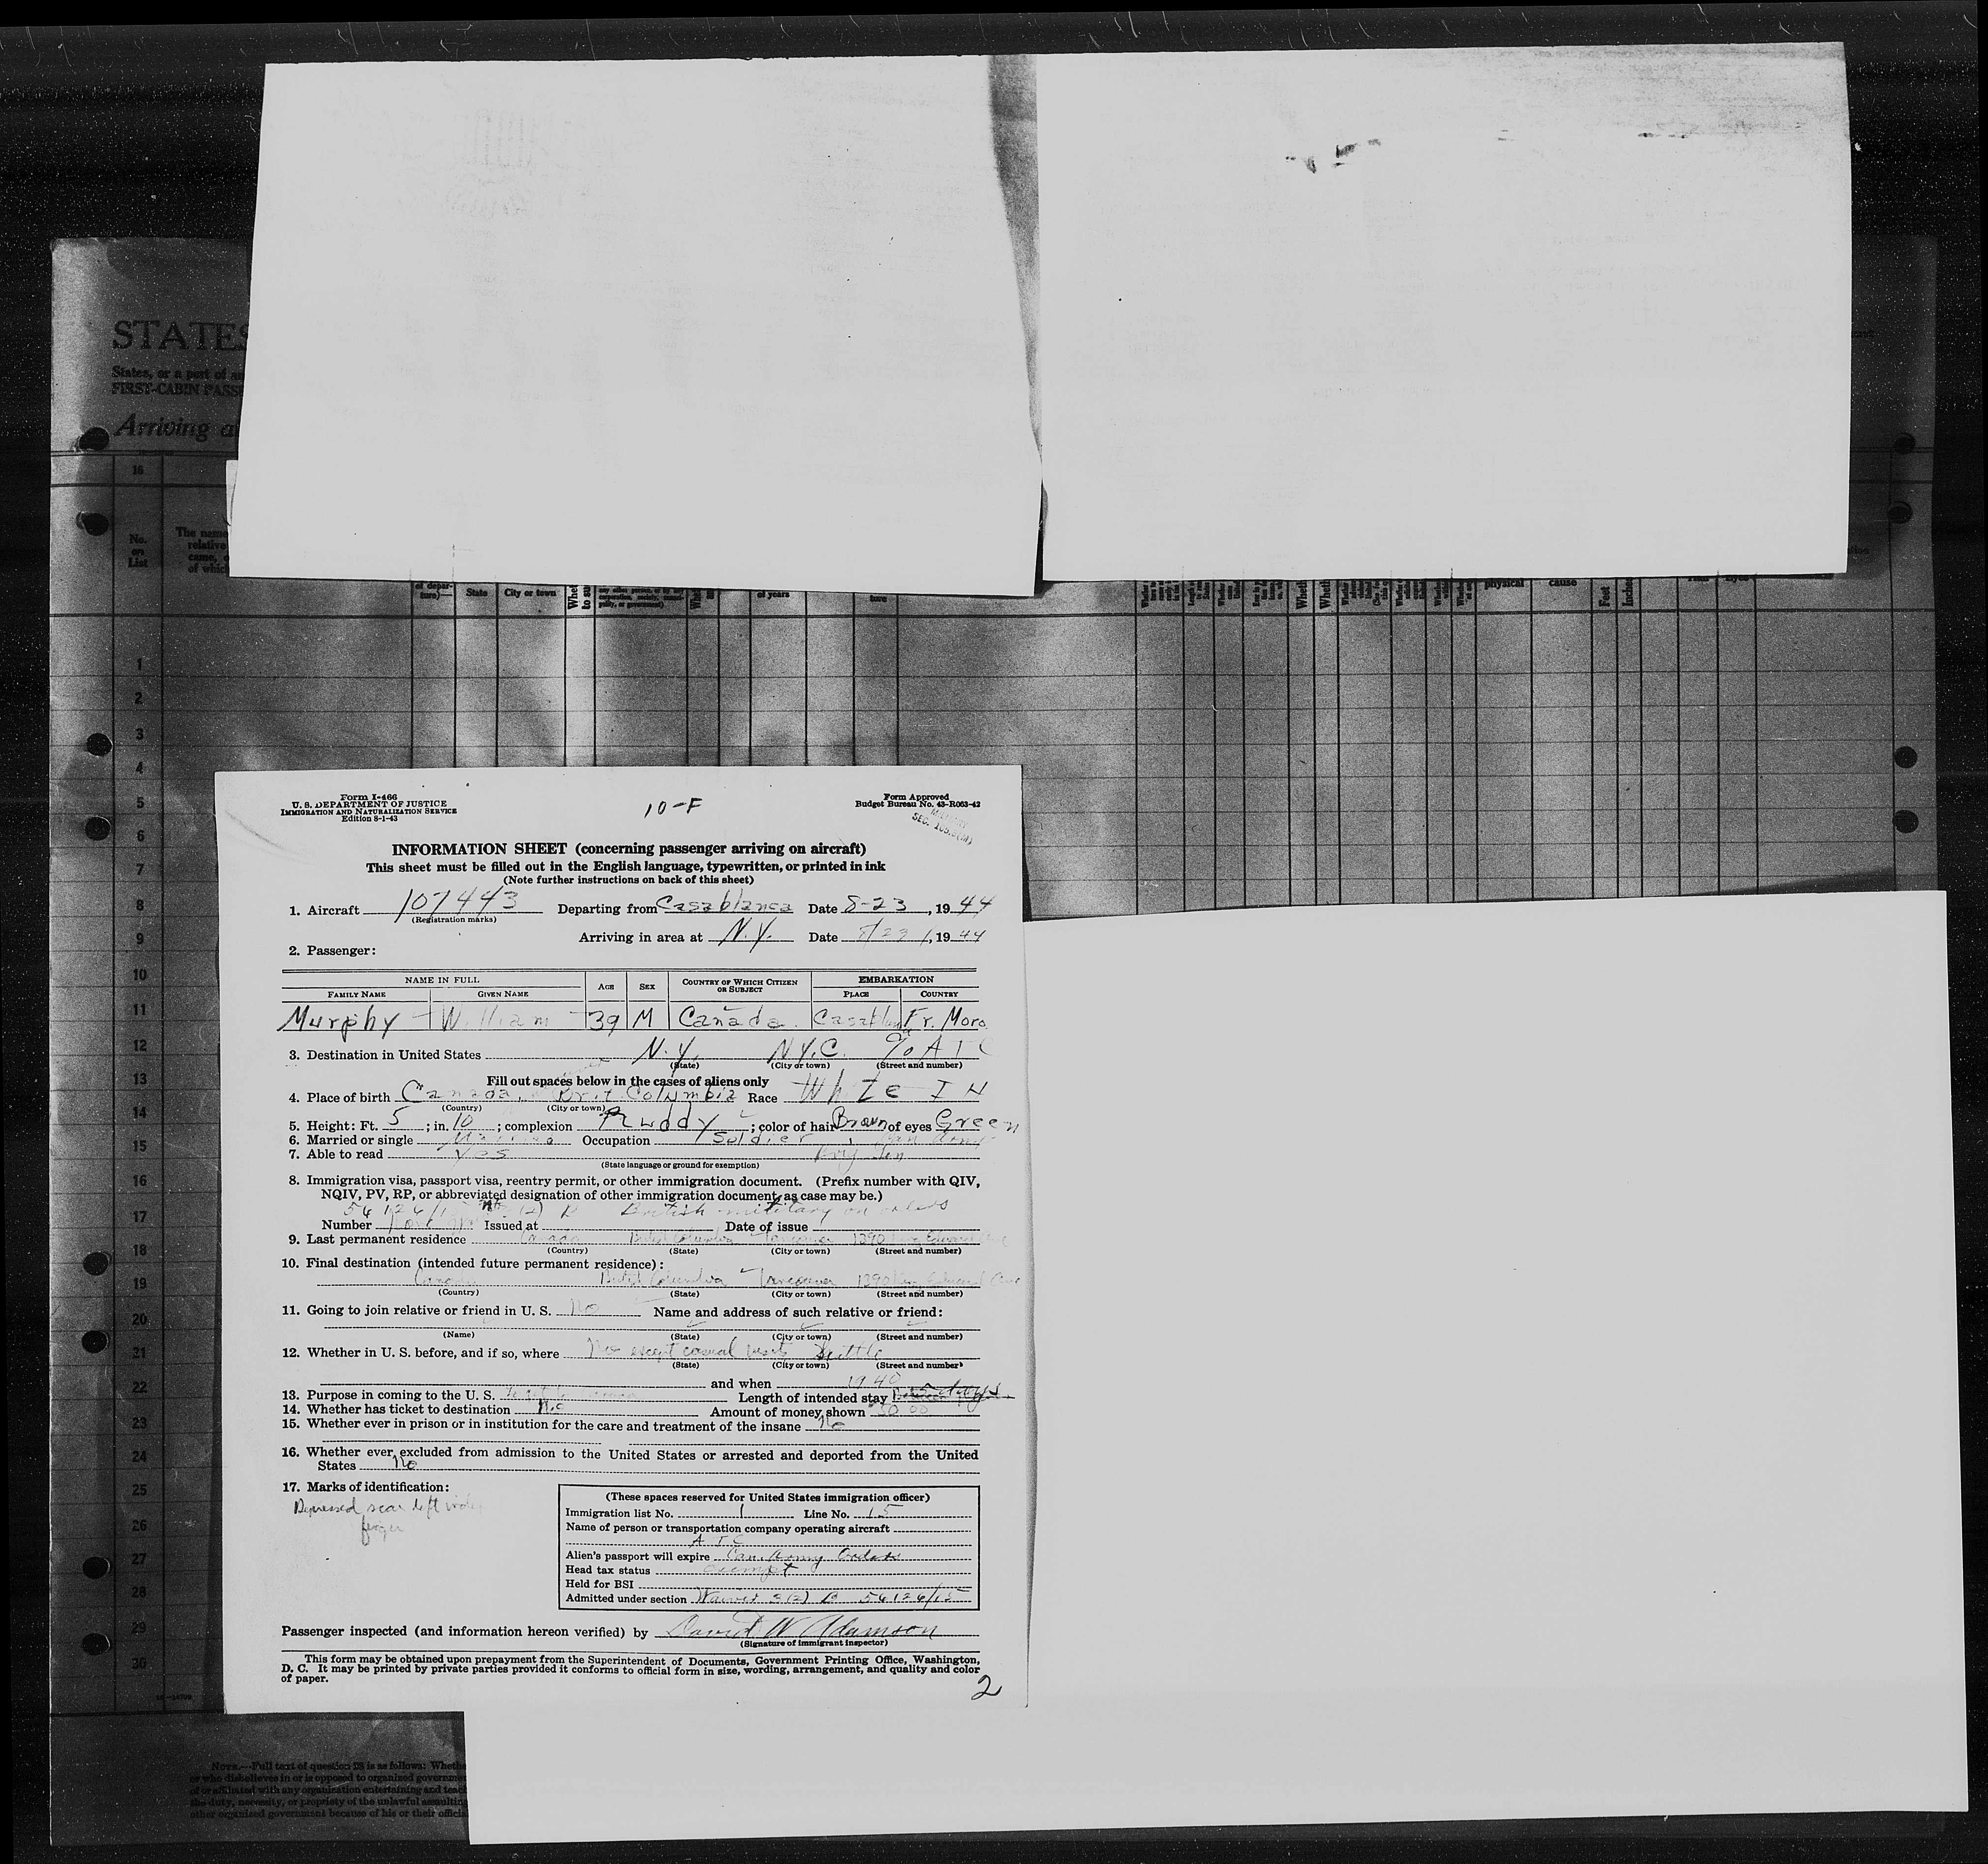 STATES
States, or a part of
FIRST-CABIN
Arriving
16
No.
on
List
The name
relative
came,
of which
of depar-
ture)—
State
City or town
of years
ture
physical
cause
Feet
Inches
1
2
3
4
5
6
7
8
9
10
11
12
13
14
15
16
17
18
19
20
21
22
23
24
25
26
27
28
29
30
Form I-466
U. S. DEPARTMENT OF JUSTICE
IMMIGRATION AND NATURALIZATION SERVICE
Edition 8-1-43
10-F
Form Approved
Budget Bureau No. 43-R063-42
INFORMATION SHEET (concerning passenger arriving on aircraft)
This sheet must be filled out in the English language, typewritten, or printed in ink
(Note further instructions on back of this sheet)
1. Aircraft 107443 Departing from Casablanca Date 8-23, 1944
(Registration marks)
Arriving in area at N.Y. Date 8/23/, 1944
2. Passenger:
NAME IN FULL AGE SEX COUNTRY OF WHICH CITIZEN OR SUBJECT EMBARKATION
FAMILY NAME GIVEN NAME PLACE COUNTRY
Murphy William 39 M Canada Casablanca Fr. Moro.
3. Destination in United States N.Y. NYC. % ATC
(State) (City or town) (Street and number)
Fill out spaces below in the cases of aliens only
4. Place of birth Canada, Brit. Columbia Race White
(Country) (City or town)
5. Height: Ft. 5; in. 10; complexion Ruddy; color of hair Brown of eyes Green
6. Married or single Married Occupation Soldier Can Army
7. Able to read Yes
(State language or ground for exemption)
8. Immigration visa, passport visa, reentry permit, or other immigration document. (Prefix number with QIV,
NQIV, PV, RP, or abbreviated designation of other immigration document, as case may be.)
56126/15 British military on orders
Number Issued at Date of issue
9. Last permanent residence Canada British Columbia Vancouver 1290 King Edward Ave
(Country) (State) (City or town) (Street and number)
10. Final destination (intended future permanent residence):
Canada British Columbia Vancouver 1290 King Edward Ave
(Country) (State) (City or town) (Street and number)
11. Going to join relative or friend in U. S. No Name and address of such relative or friend:
(Name) (State) (City or town) (Street and number)
12. Whether in U. S. before, and if so, where No except casual visits Seattle
(State) (City or town) (Street and number)
and when 1940
13. Purpose in coming to the U. S. Length of intended stay days
14. Whether has ticket to destination No Amount of money shown 50.00
15. Whether ever in prison or in institution for the care and treatment of the insane No
16. Whether ever excluded from admission to the United States or arrested and deported from the United
States No
17. Marks of identification:
Depressed scar left index
finger
(These spaces reserved for United States immigration officer)
Immigration list No. 1 Line No. 15
Name of person or transportation company operating aircraft
ATC
Alien's passport will expire Can. Army Orders
Head tax status exempt
Held for BSI
Admitted under section Waiver 3(2) B 56126/15
Passenger inspected (and information hereon verified) by David W Adamson
(Signature of immigrant inspector)
This form may be obtained upon prepayment from the Superintendent of Documents, Government Printing Office, Washington,
D. C. It may be printed by private parties provided it conforms to official form in size, wording, arrangement, and quality and color
of paper.
2
NOTE.—Full text of question 28 is as follows: Whether
or who disbelieves in or is opposed to organized government
of or affiliated with any organization entertaining and
the duty, necessity, or propriety of the unlawful assaulting
other organized government because of his or their official